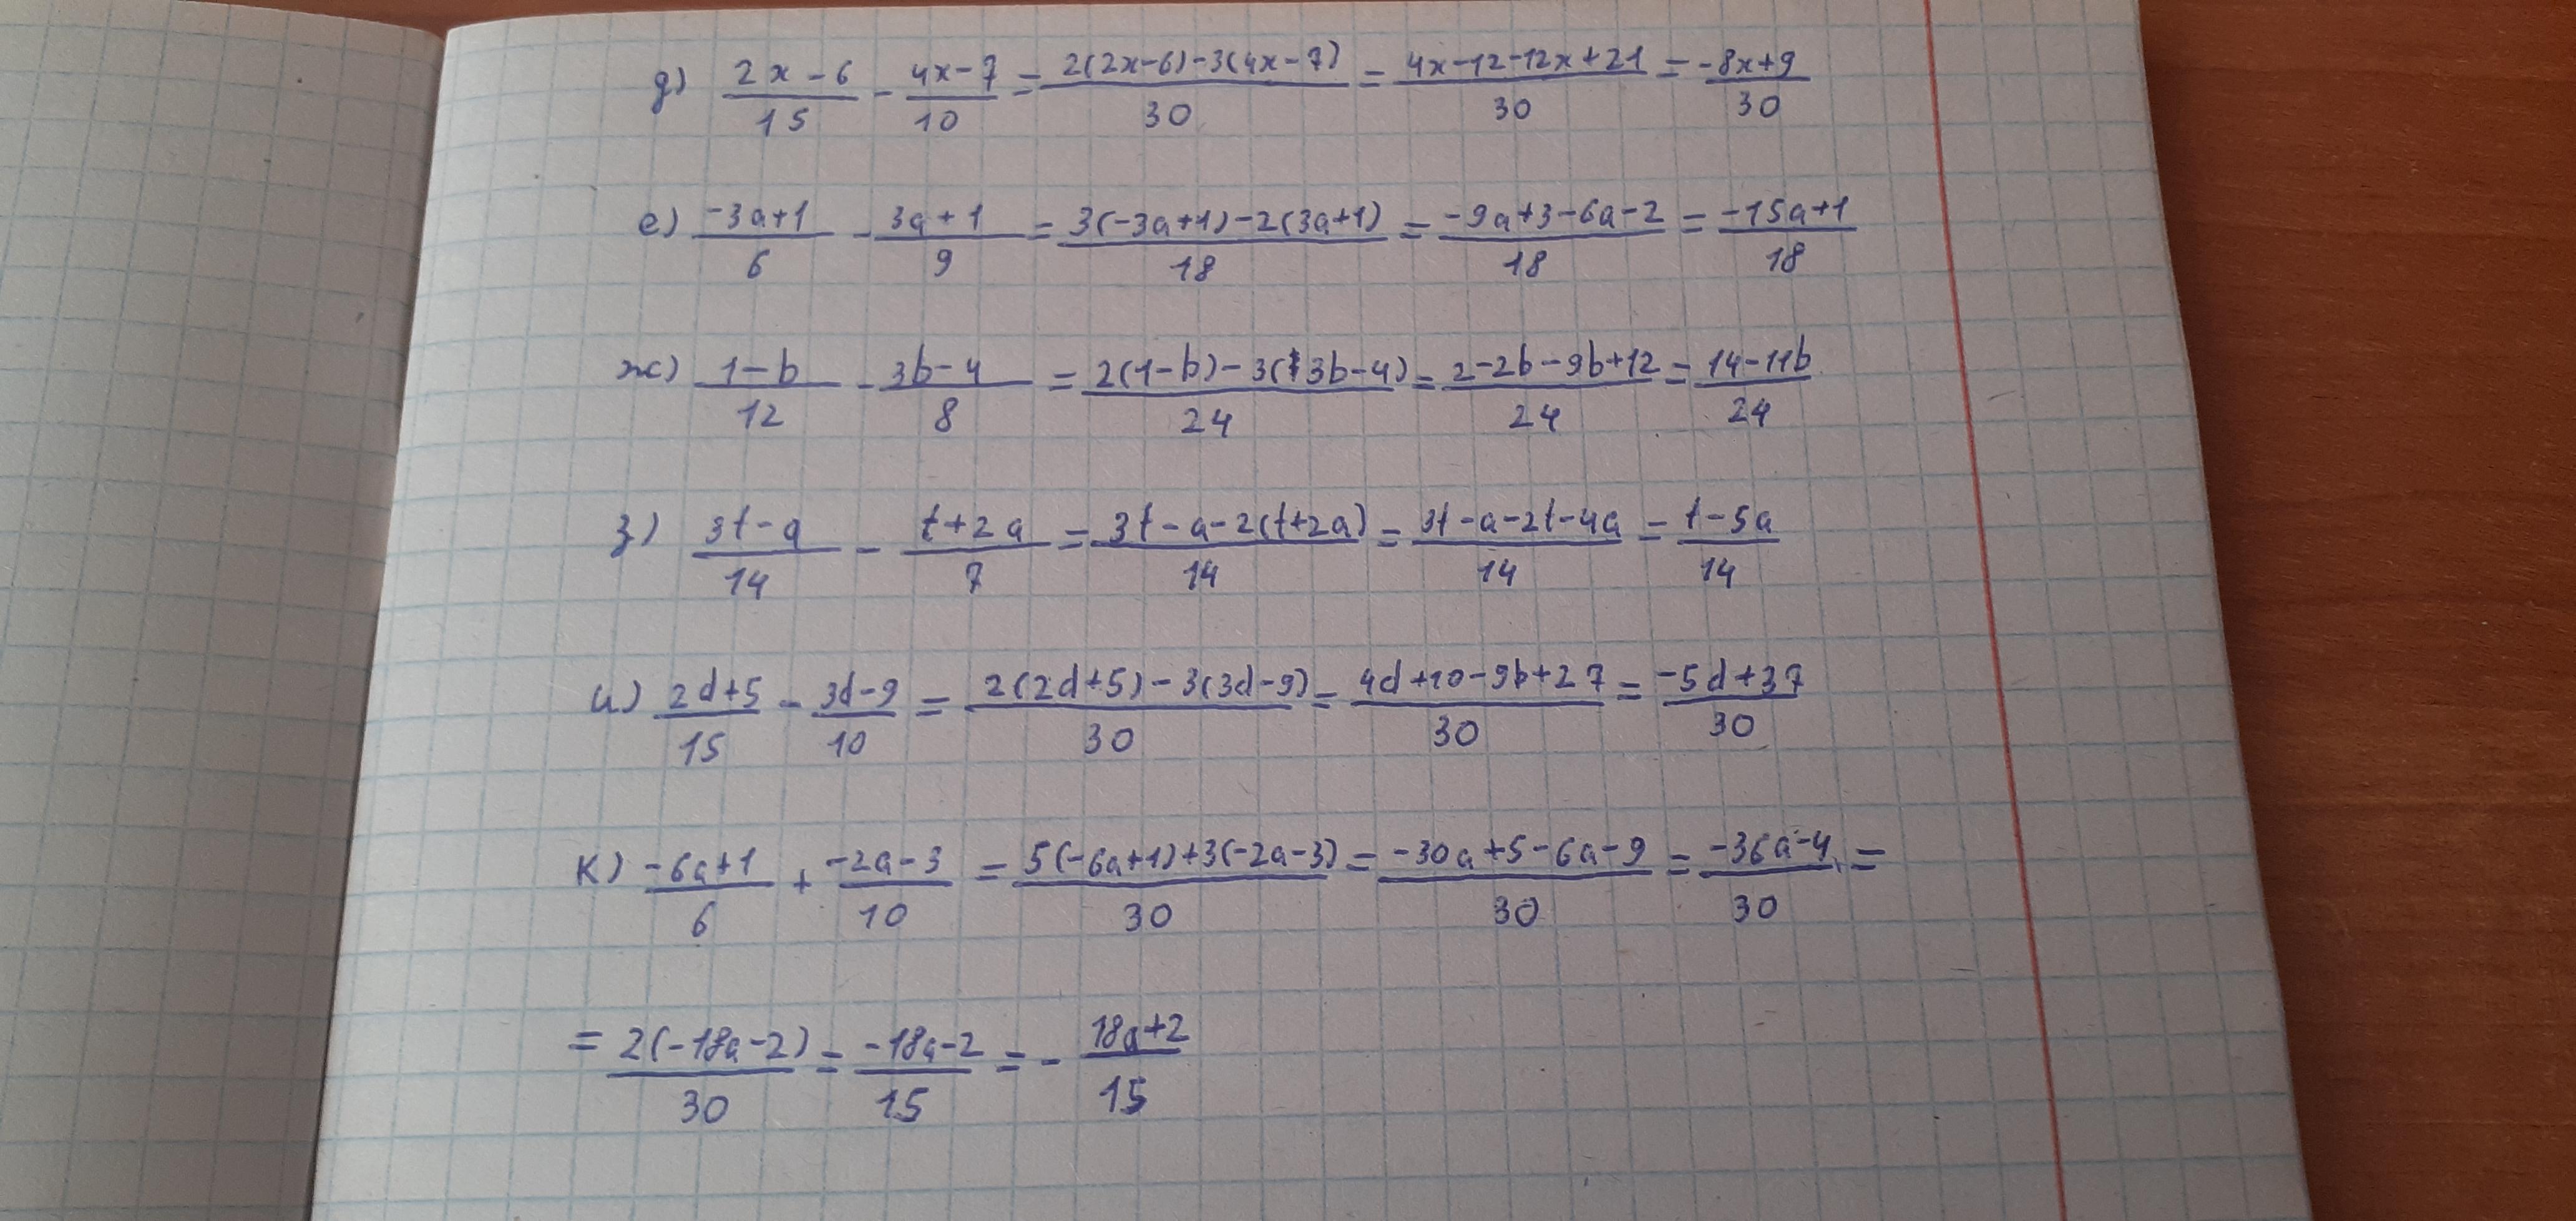 д) (2x-6)/15 - (4x-7)/10 = (2(2x-6)-3(4x-7))/30 = (4x-12-12x+21)/30 = (-8x+9)/30
е) (-3a+1)/6 - (3a+1)/9 = (3(-3a+1)-2(3a+1))/18 = (-9a+3-6a-2)/18 = (-15a+1)/18
ж) (1-b)/12 - (3b-4)/8 = (2(1-b)-3(3b-4))/24 = (2-2b-9b+12)/24 = (14-11b)/24
з) (3t-a)/14 - (t+2a)/7 = (3t-a-2(t+2a))/14 = (3t-a-2t-4a)/14 = (t-5a)/14
и) (2d+5)/15 - (3d-9)/10 = (2(2d+5)-3(3d-9))/30 = (4d+10-9b+27)/30 = (-5d+37)/30
к) (-6a+1)/6 + (-2a-3)/10 = (5(-6a+1)+3(-2a-3))/30 = (-30a+5-6a-9)/30 = (-36a-4)/30 =
= (2(-18a-2))/30 = (-18a-2)/15 = - (18a+2)/15